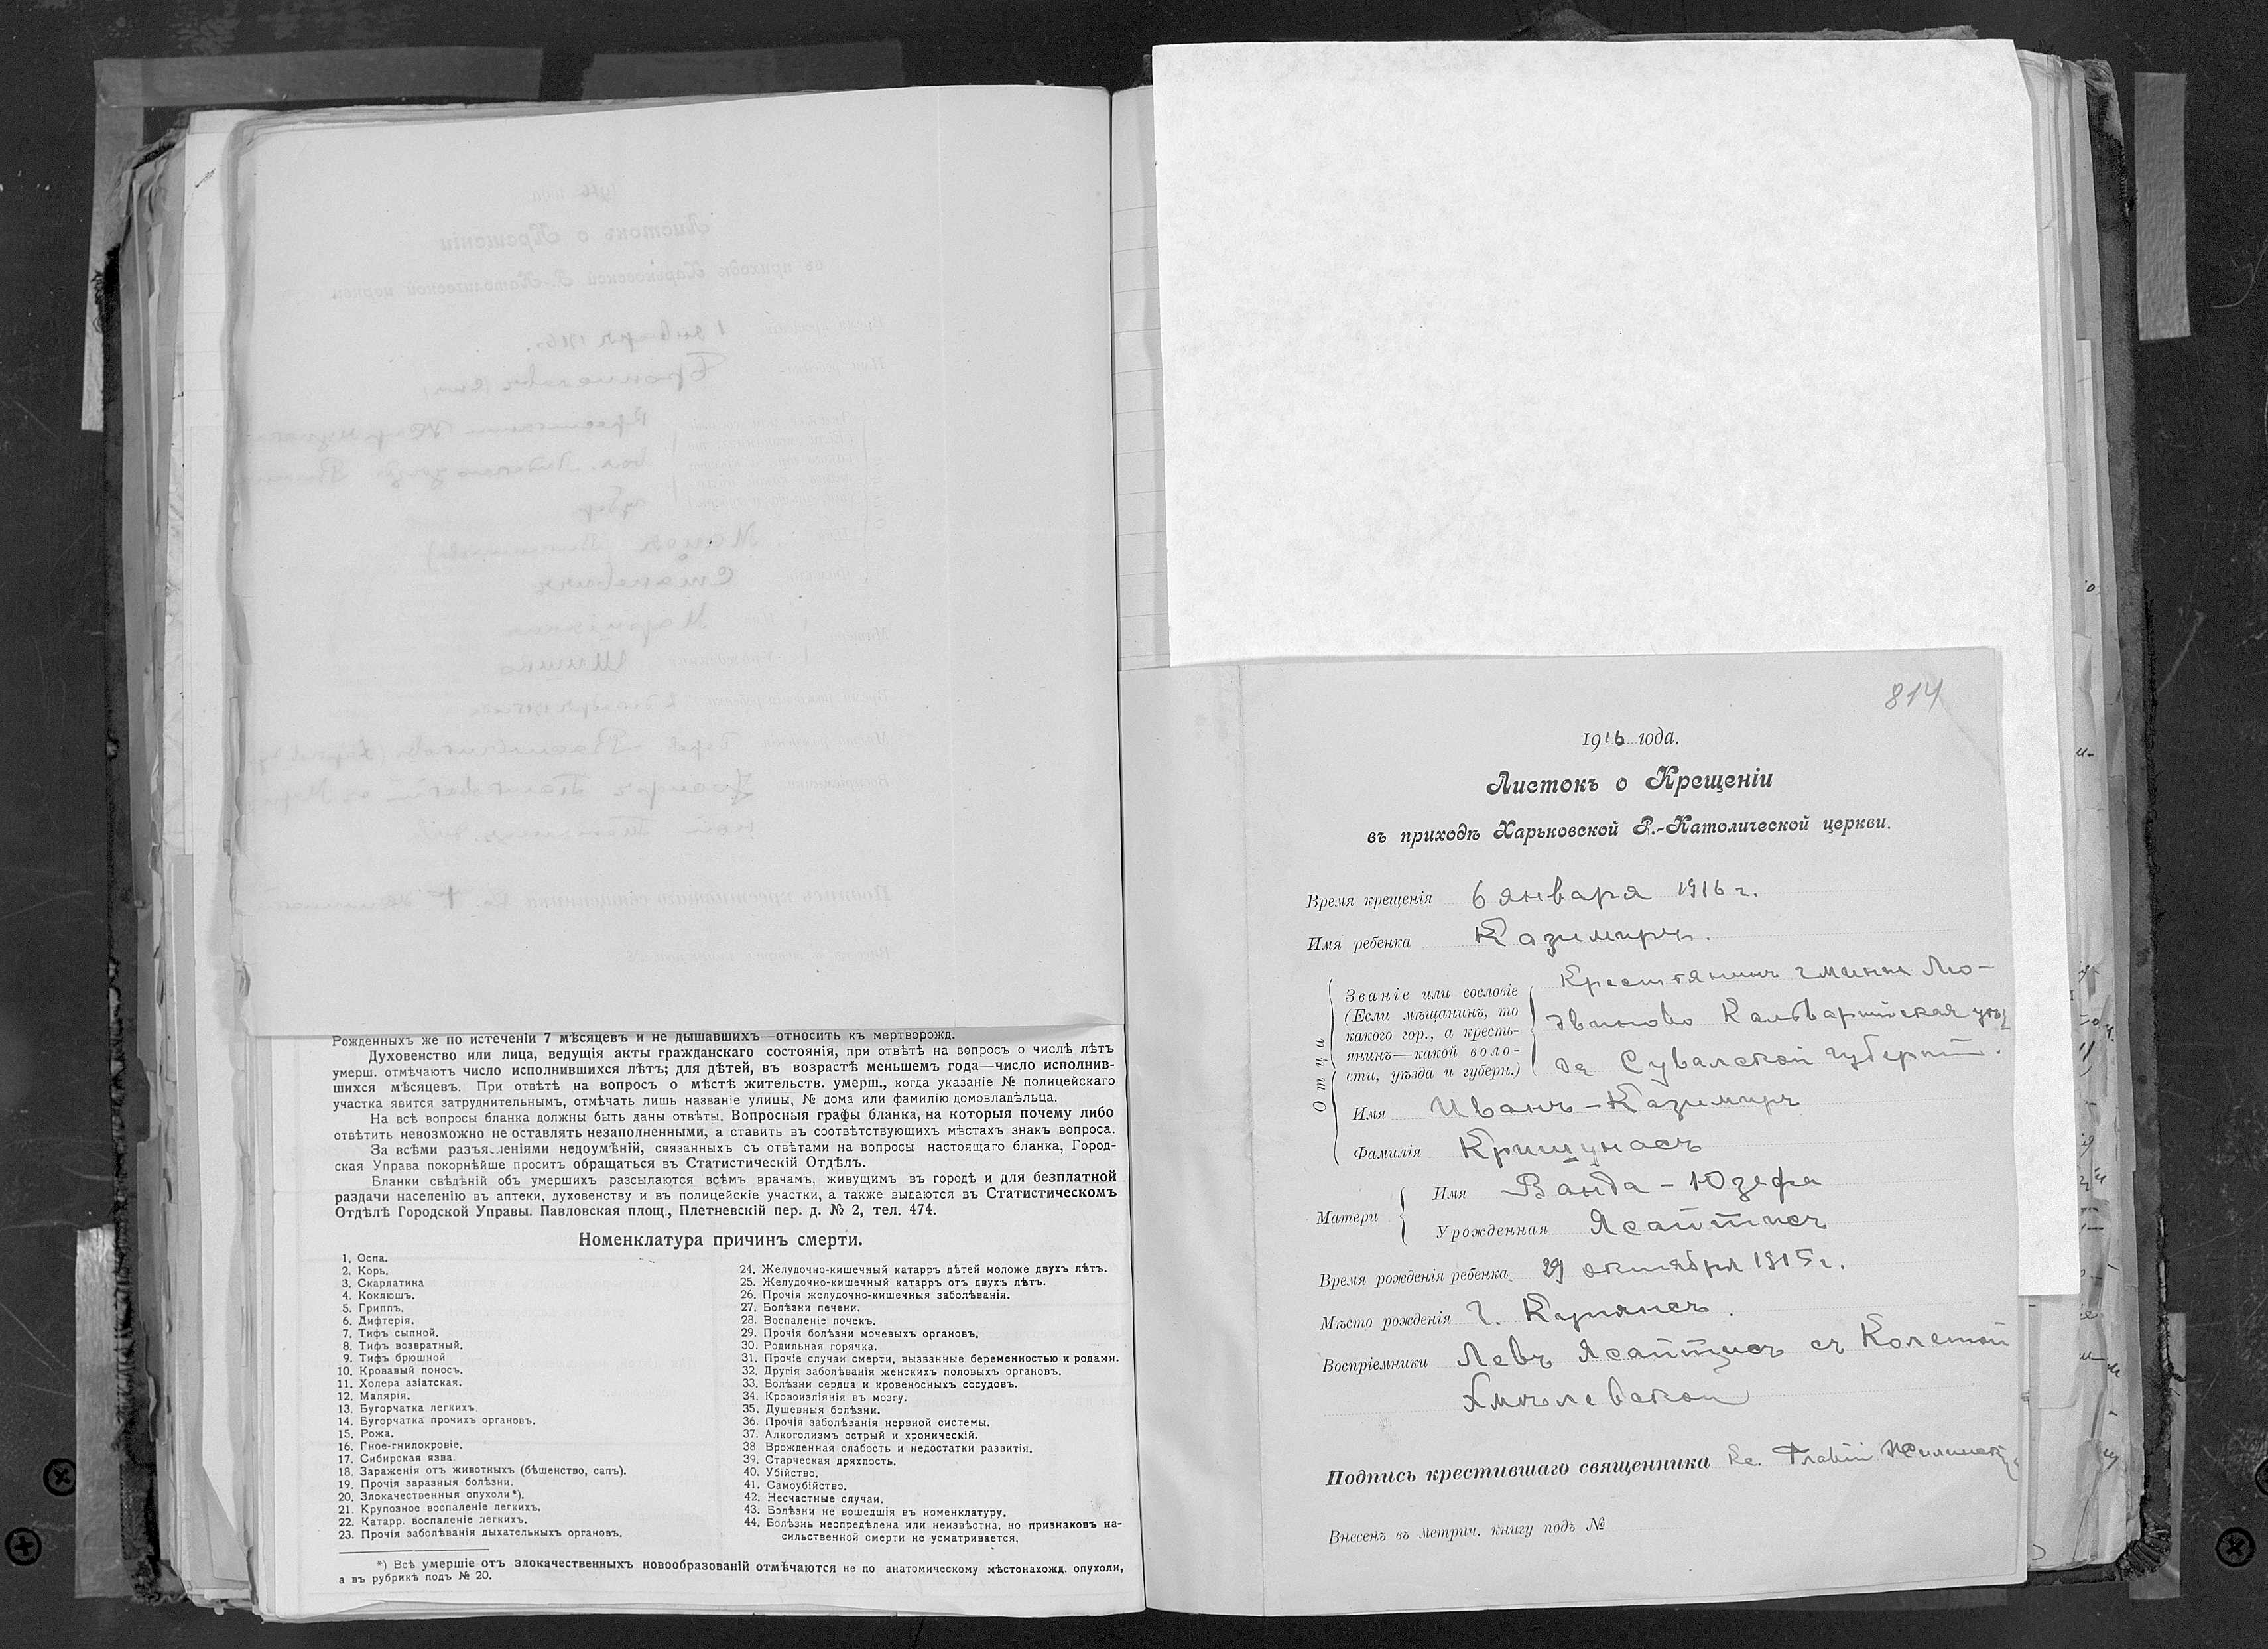 Рожденныхъ же по истеченіи 7 мѣсяцевъ и не дышавшихъ—относить къ мертворожд.
Духовенство или лица, ведущія акты гражданскаго состоянія, при отвѣтѣ на вопросъ о числѣ лѣтъ
умерш. отмѣчаютъ число исполнившихся лѣтъ; для дѣтей, въ возрастѣ меньшемъ года—число исполнив-
шихся мѣсяцевъ. При отвѣтѣ на вопросъ о мѣстѣ жительств. умерш., когда указаніе № полицейскаго
участка явится затруднительнымъ, отмѣчать лишь названіе улицы, № дома или фамилію домовладѣльца.
На всѣ вопросы бланка должны быть даны отвѣты. Вопросныя графы бланка, на которыя почему либо
отвѣтить невозможно не оставлять незаполненными, а ставить въ соотвѣтствующихъ мѣстахъ знакъ вопроса.
За всѣми разъясненіями недоумѣній, связанныхъ съ отвѣтами на вопросы настоящаго бланка, Город-
ская Управа покорнѣйше проситъ обращаться въ Статистическій Отдѣлъ.
Бланки свѣдѣній объ умершихъ разсылаются всѣмъ врачамъ, живущимъ въ городѣ и для безплатной
раздачи населенію въ аптеки, духовенству и въ полицейскіе участки, а также выдаются въ Статистическомъ
Отдѣлѣ Городской Управы. Павловская площ., Плетневскій пер. д. № 2, тел. 474.
Номенклатура причинъ смерти.
1. Оспа.
2. Корь.
3. Скарлатина
4. Коклюшъ.
5. Гриппъ.
6. Дифтерія.
7. Тифъ сыпной.
8. Тифъ возвратный.
9. Тифъ брюшной
10. Кровавый поносъ.
11. Холера азіатская.
12. Малярія.
13. Бугорчатка легкихъ.
14. Бугорчатка прочихъ органовъ.
15. Рожа.
16. Гное-гнилокровіе.
17. Сибирская язва
18. Зараженія отъ животныхъ (бѣшенство, сапъ).
19. Прочія заразныя болѣзни.
20. Злокачественныя опухоли*).
21. Крупозное воспаленіе легкихъ.
22. Катарр. воспаленіе легкихъ.
23. Прочія заболѣванія дыхательныхъ органовъ.
24. Желудочно-кишечный катарръ дѣтей моложе двухъ лѣтъ.
25. Желудочно-кишечный катарръ отъ двухъ лѣтъ.
26. Прочія желудочно-кишечныя заболѣванія.
27. Болѣзни печени.
28. Воспаленіе почекъ.
29. Прочія болѣзни мочевыхъ органовъ.
30. Родильная горячка.
31. Прочіе случаи смерти, вызванные беременностью и родами.
32. Другія заболѣванія женскихъ половыхъ органовъ.
33. Болѣзни сердца и кровеносныхъ сосудовъ.
34. Кровоизліянія въ мозгу.
35. Душевныя болѣзни.
36. Прочія заболѣванія нервной системы.
37. Алкоголизмъ острый и хроническій.
38 Врожденная слабость и недостатки развитія.
39. Старческая дряхлость.
40. Убійство.
41. Самоубійство.
42. Несчастные случаи.
43. Болѣзни не вошедшія въ номенклатуру.
44. Болѣзнь неопредѣлена или неизвѣстна, но признаковъ на-
сильственной смерти не усматривается.
*) Всѣ умершіе отъ злокачественныхъ новообразованій отмѣчаются не по анатомическому мѣстонахожд. опухоли,
а въ рубрикѣ подъ № 20.
814
1916 года.
Листокъ о Крещеніи
въ приходѣ Харьковской Р.-Католической церкви.
Время крещенія 6 января 1916 г.
Имя ребенка Казимиръ.
Отца
Званіе или сословіе
(Если мѣщанинъ, то
какого гор., а кресть-
янинъ—какой воло-
сти, уѣзда и губерн.)
Крестьянинъ гмины Лю-
двиново Кальварійская уѣз
да Сувалской губерніи.
Имя Иванъ-Казимиръ
Фамилія Кришунасъ
Матери
Имя Ванда-Юзефа
Урожденная Ясайтисъ
Время рожденія ребенка 29 октября 1915 г.
Мѣсто рожденія г. Купянскъ.
Воспріемники Левъ Ясайтисъ съ Колетой
Хмѣлевской
Подпись крестившаго священника Кс.
Внесенъ въ метрич. книгу подъ №